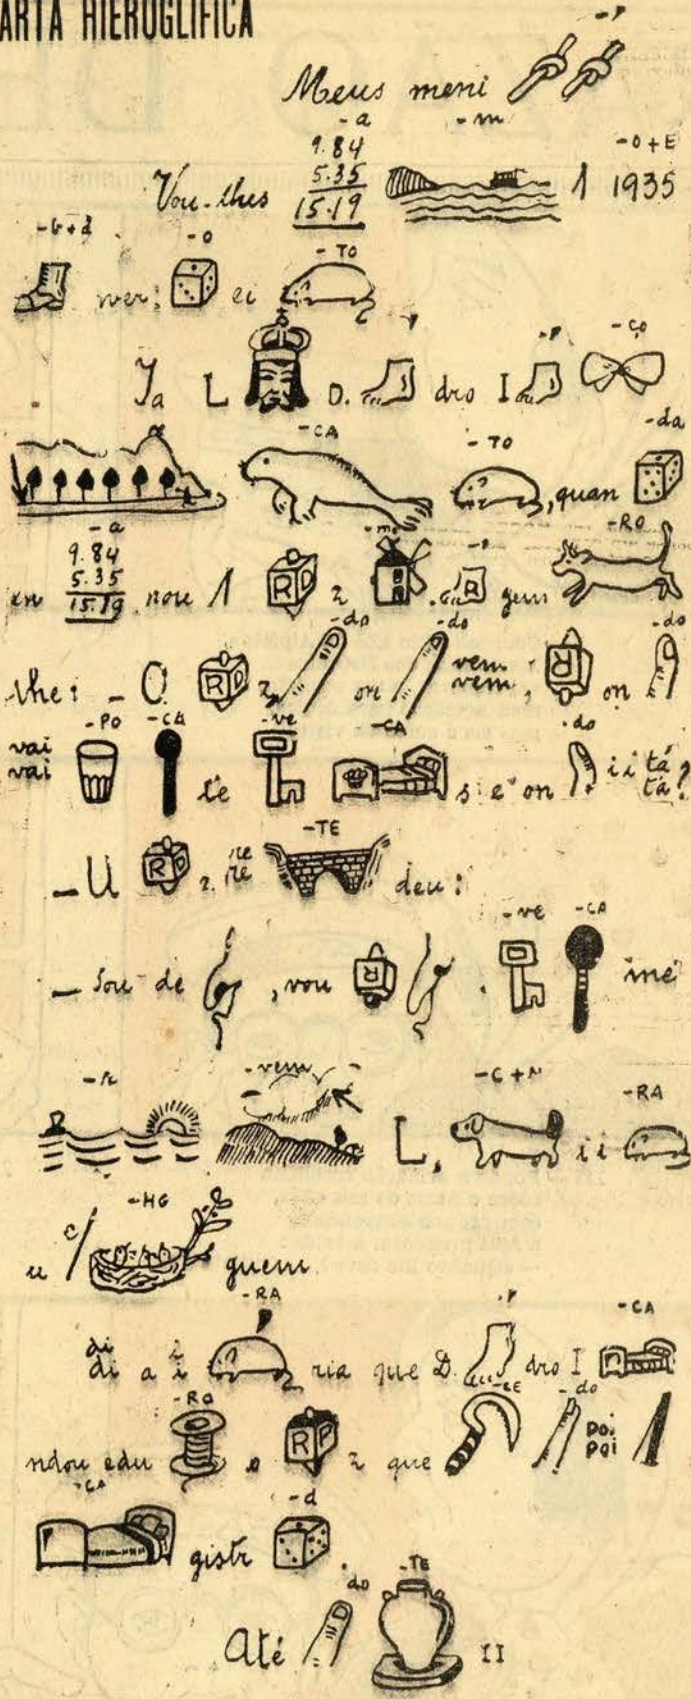 CARTA HIEROGLIFICA
-,
Meus meni
-a -m -O+E
9.84
5.35
15.19
Vou-lhes 1 1935
-b+d -o -TO
ver: ei
-, -, -ço
Ja L D. dro I
-CA -TO -da
, quan
-a -RO
9.84
5.35
15.19
en nou 1 R z gem
-do -do -do
lhe: - O R z, ou vem vem; R on
-PO -CA -ve -CA -do
vai vai te s e on i i tá tá?
-TE
- U R z. re re deu:
-ve -CA
- Sou de , vou R . me
-r -vem -C+N -RA
L, i i
-HG
u c/ guem.
-RA -, -CA
di di a i i ria que D. dro I
-RO -CE -do
ndou edu o R z que poi poi
-CA -d
gistr .
-do -TE
Até II